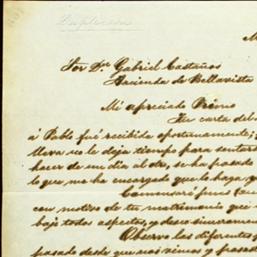 Duplicado
M
Sor Dn Gabriel Castaños
Hacienda de Bellavista
Mi apreciado Primo
Su carta del
á Pablo fué recibida oportunamente;
lleva no le deja tiempo para sentar
hacer de un dia al otro, se ha pasado
lo que me ha encargado que lo haga yo
Comenzaré pues
con motivo de tu matrimonio que
bajo todos aspectos, y deseo sinceramen
Observo las diferentes
pasado desde que nos vimos y